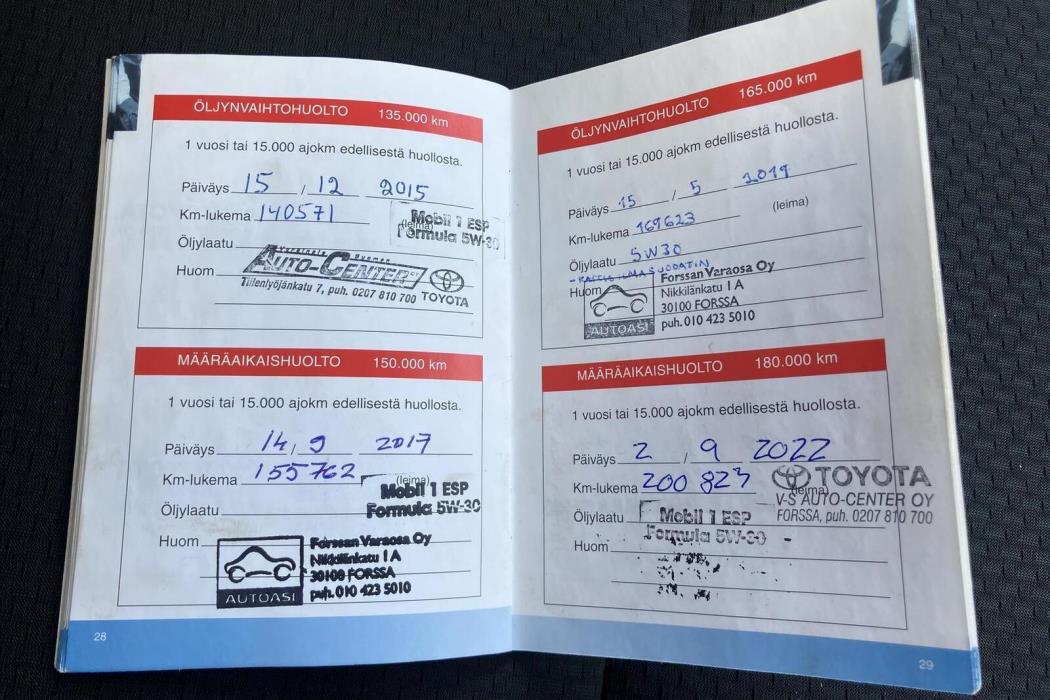 ÖLJYNVAIHTOHUOLTO 135.000 km
1 vuosi tai 15.000 ajokm edellisestä huollosta.
Päiväys 15 / 12 2015
Km-lukema 140571 (leima)
Mobil 1 ESP
Formula 5W-30
Öljylaatu
Huom
AUTO-CENTER OY
Tiilenlyöjänkatu 7, puh. 0207 810 700 TOYOTA
MÄÄRÄAIKAISHUOLTO 150.000 km
1 vuosi tai 15.000 ajokm edellisestä huollosta.
Päiväys 14 / 9 2017
Km-lukema 155762 (leima)
Mobil 1 ESP
Öljylaatu Formula 5W-30
Huom
Forssan Varaosa Oy
Nikkilänkatu 1 A
30100 FORSSA
AUTOASI puh. 010 423 5010
28
ÖLJYNVAIHTOHUOLTO 165.000 km
1 vuosi tai 15.000 ajokm edellisestä huollosta.
Päiväys 15 / 5 2019
Km-lukema 169623 (leima)
Öljylaatu 5W30
- RAITIS ILMASUODATIN
Huom
Forssan Varaosa Oy
Nikkilänkatu 1 A
30100 FORSSA
AUTOASI puh. 010 423 5010
MÄÄRÄAIKAISHUOLTO 180.000 km
1 vuosi tai 15.000 ajokm edellisestä huollosta.
Päiväys 2 / 9 2022
Km-lukema 200 823 (leima)
TOYOTA
V-S AUTO-CENTER OY
FORSSA, puh. 0207 810 700
Öljylaatu Mobil 1 ESP
Formula 5W-30
Huom
29